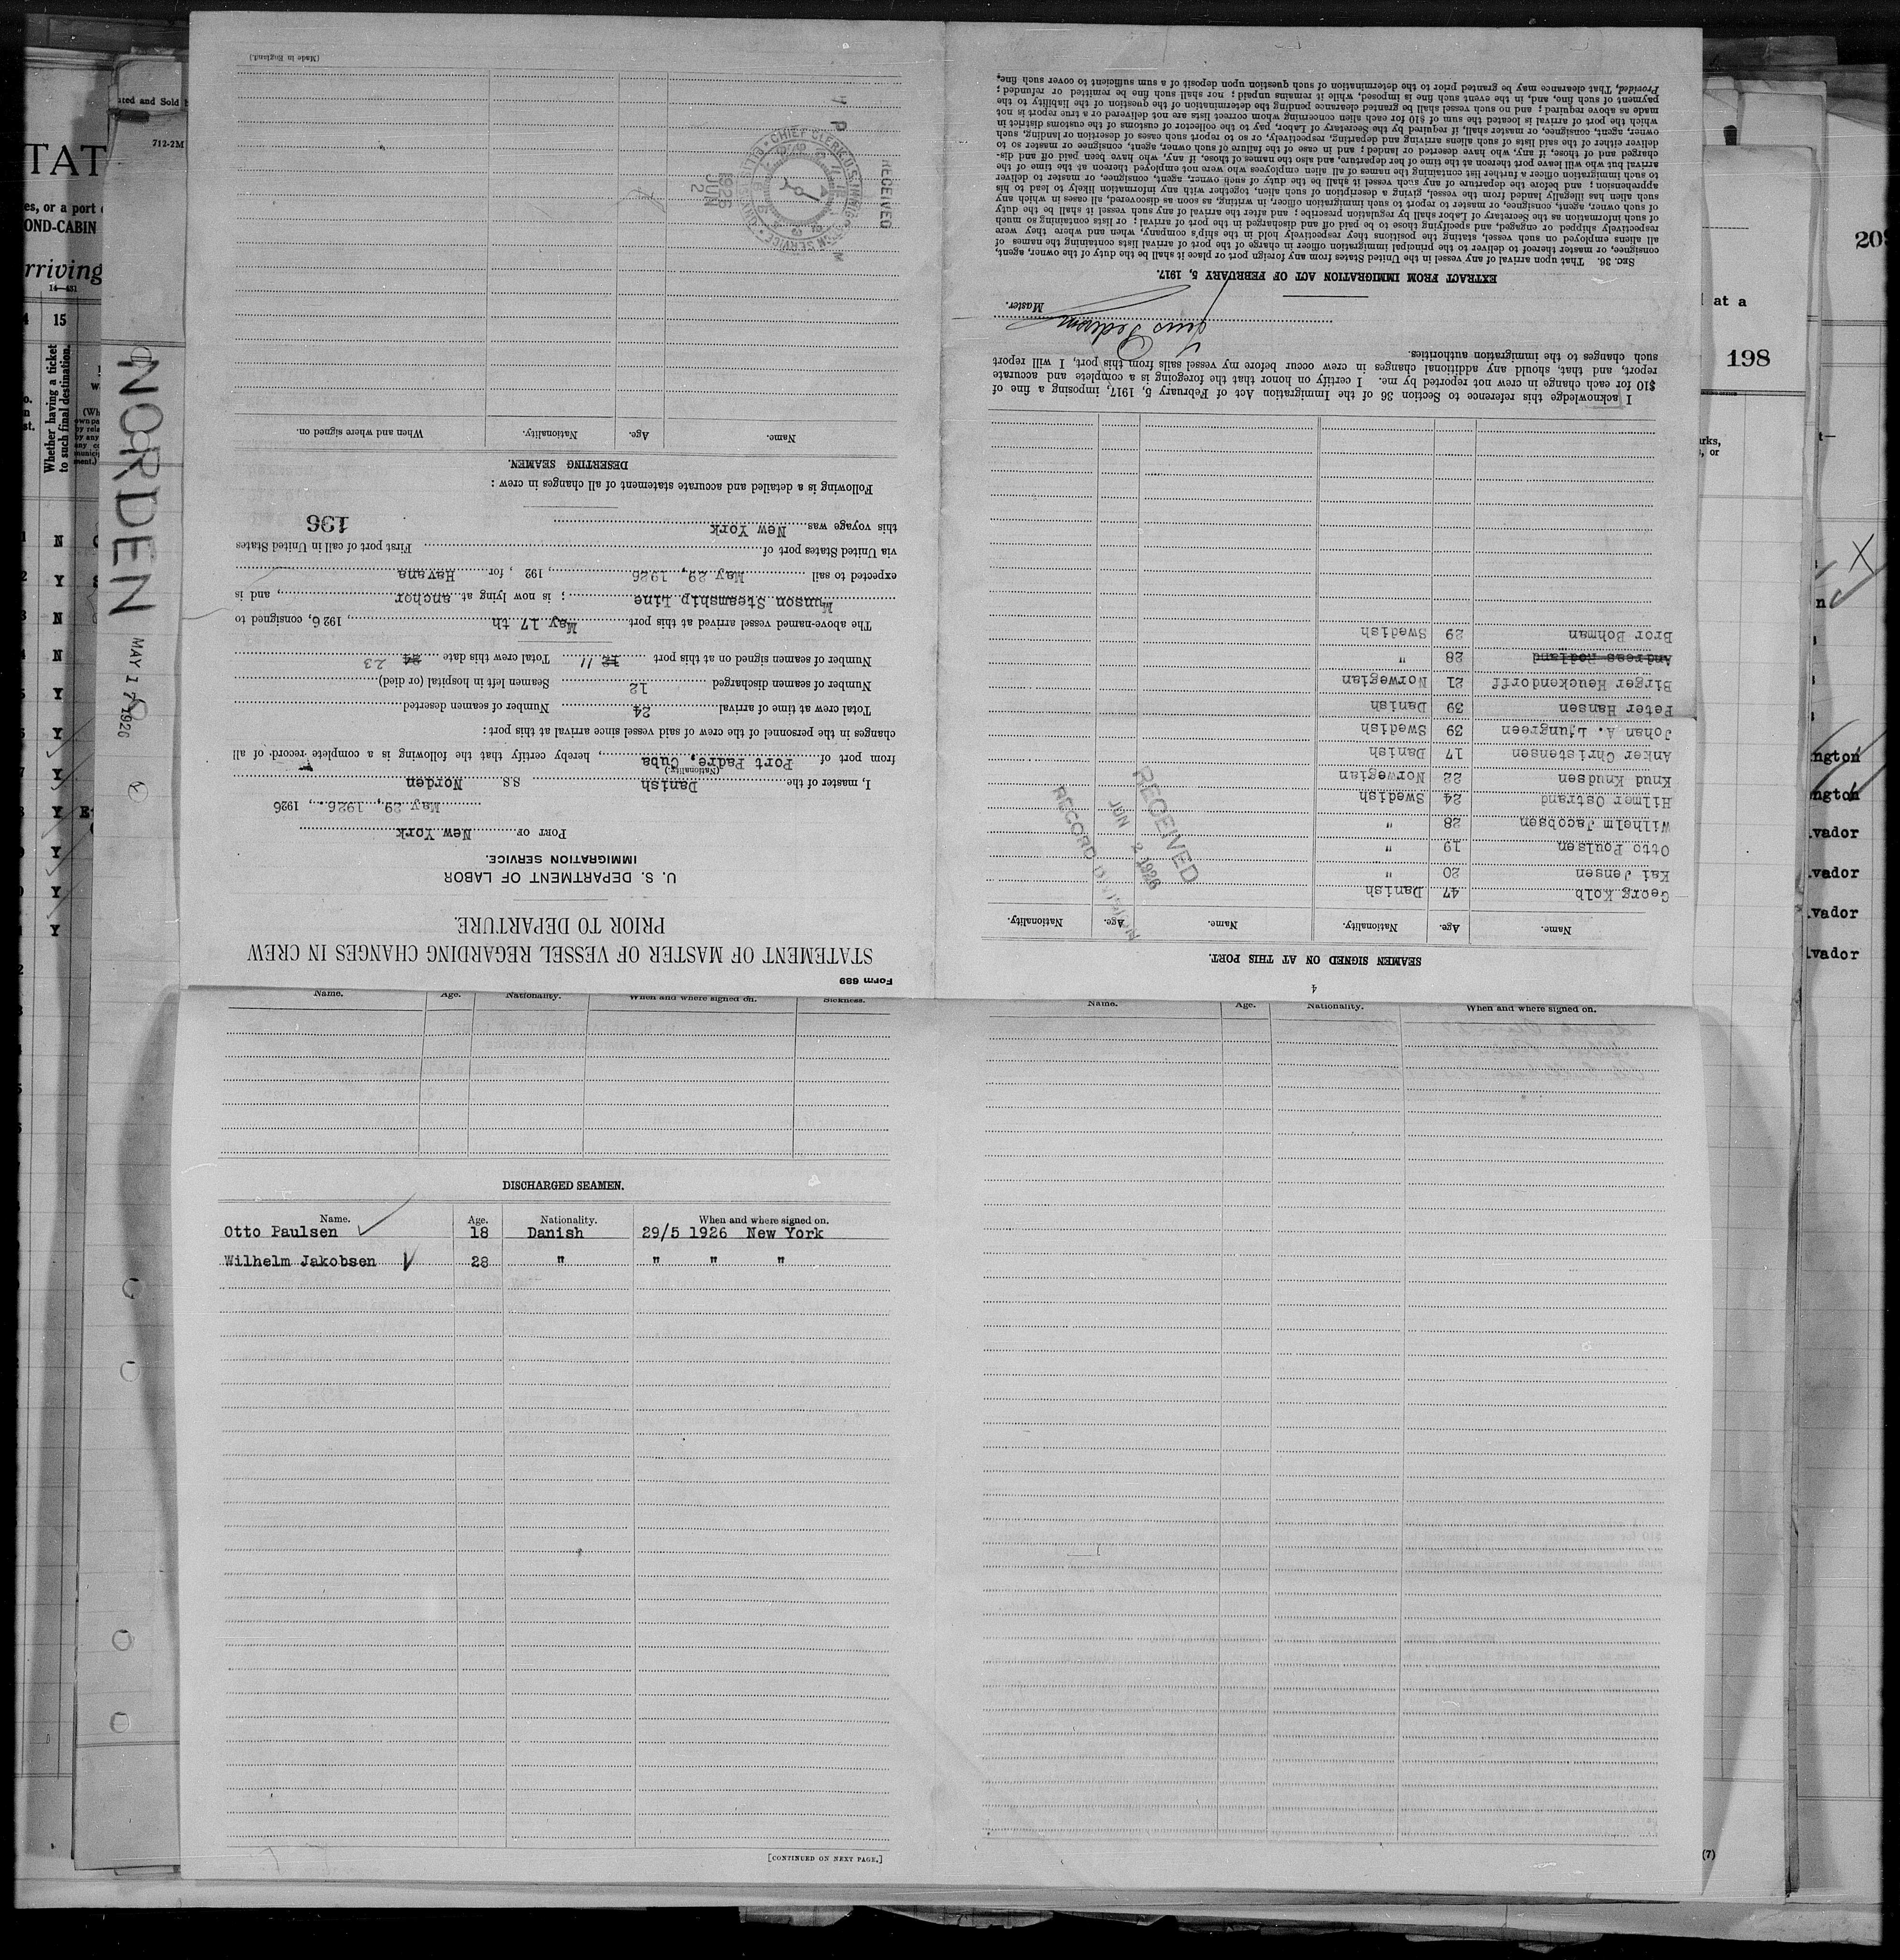 Form 689
STATEMENT OF MASTER OF VESSEL REGARDING CHANGES IN CREW
PRIOR TO DEPARTURE.
U. S. DEPARTMENT OF LABOR
IMMIGRATION SERVICE.
PORT OF New York
May 29, 1926., 1926
I, master of the Danish S.S. Norden
(Nationality.)
from port of Port Padre, Cuba, hereby certify that the following is a complete record of all
changes in the personnel of the crew of said vessel since arrival at this port:
Total crew at time of arrival 24 Number of seamen deserted
Number of seamen discharged 12 Seamen left in hospital (or died)
Number of seamen signed on at this port 12 11 Total crew this date 24 23
The above-named vessel arrived at this port May 17 th, 1926, consigned to
Munson Steamship Line; is now lying at anchor, and is
expected to sail May 29, 1926, 192 , for Havana
via United States port of First port of call in United States
this voyage was New York
196
Following is a detailed and accurate statement of all changes in crew:
DESERTING SEAMEN.
Name. Age. Nationality. When and where signed on.
RECEIVED
1926
JUN
2
P
(Made in England.)
4
SEAMEN SIGNED ON AT THIS PORT.
Name. Age. Nationality. Name. Age. Nationality.
Georg Kolb 47 Danish
Kai Jensen 20 "
Otto Poulsen 19 "
Wilhelm Jacobsen 28 "
Hilmer Ostrand 24 Swedish
Knud Knudsen 22 Norwegian
Anker Christensen 17 Danish
Johan A. Ljungreen 39 Swedish
Peter Hansen 39 Danish
Birger Heuckendorff 21 Norwegian
Andreas Rodland 28 "
Bror Bohman 29 Swedish
RECEIVED
JUN 2 1926
RECORD DIVISION
I acknowledge this reference to Section 36 of the Immigration Act of February 5, 1917, imposing a fine of
$10 for each change in crew not reported by me. I certify on honor that the foregoing is a complete and accurate
report, and that, should any additional changes in crew occur before my vessel sails from this port, I will report
such changes to the immigration authorities.
Master.
EXTRACT FROM IMMIGRATION ACT OF FEBRUARY 5, 1917.
SEC. 36. That upon arrival of any vessel in the United States from any foreign port or place it shall be the duty of the owner, agent,
consignee, or master thereof to deliver to the principal immigration officer in charge of the port of arrival lists containing the names of
all aliens employed on such vessel, stating the positions they respectively hold in the ship's company, when and where they were
respectively shipped or engaged, and specifying those to be paid off and discharged in the port of arrival; or lists containing so much
of such information as the Secretary of Labor shall by regulation prescribe; and after the arrival of any such vessel it shall be the duty
of such owner, agent, consignee, or master to report to such immigration officer, in writing, as soon as discovered, all cases in which any
such alien has illegally landed from the vessel, giving a description of such alien, together with any information likely to lead to his
apprehension; and before the departure of any such vessel it shall be the duty of such owner, agent, consignee, or master to deliver
to such immigration officer a further list containing the names of all alien employees who were not employed thereon at the time of the
arrival but who will leave port thereon at the time of her departure, and also the names of those, if any, who have been paid off and dis-
charged and of those, if any, who have deserted or landed; and in case of the failure of such owner, agent, consignee or master to so
deliver either of the said lists of such aliens arriving and departing, respectively, or so to report such cases of desertion or landing, such
owner, agent, consignee, or master shall, if required by the Secretary of Labor, pay to the collector of customs of the customs district in
which the port of arrival is located the sum of $10 for each alien concerning whom correct lists are not delivered or a true report is not
made as above required; and no such vessel shall be granted clearance pending the determination of the question of the liability to the
payment of such fine, and, in the event such fine is imposed, while it remains unpaid; nor shall such fine be remitted or refunded;
Provided, That clearance may be granted prior to the determination of such question upon deposit of a sum sufficient to cover such fine.
Name. Age. Nationality. When and where signed on. Sickness.
DISCHARGED SEAMEN.
Name. Age. Nationality. When and where signed on.
Otto Paulsen 18 Danish 29/5 1926 New York
Wilhelm Jakobsen 28 " " " "
[CONTINUED ON NEXT PAGE.]
Name. Age. Nationality. When and where signed on.
NORDEN
MAY 17 1926
712-2M
TAT
es, or a port
OND-CABIN
rriving
14—431
15
Whether having a ticket
to such final destination.
N
Y
N
N
Y
Y
Y
Y
Y
Y
Y
198
at a
rks,
, or
ngton
ngton
vador
vador
vador
vador
(7)